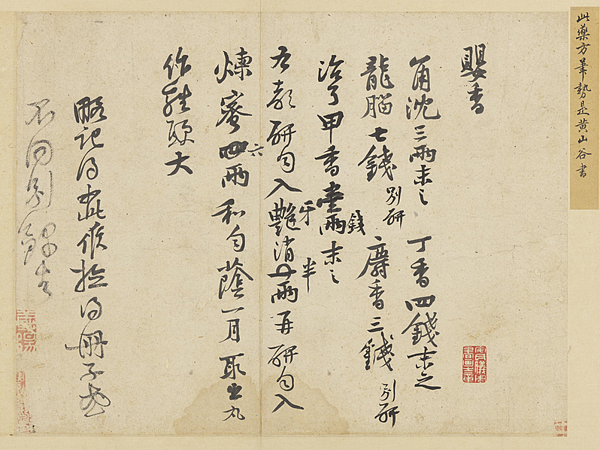 此藥方筆勢是黃山谷書
嬰香
角沈三兩末之 丁香四錢末之
龍腦七錢別研 麝香三錢別研
治了甲香壹兩錢末之
右都研勻入艷牙消半兩再研勻入
煉蜜四六兩和勻蔭一月取出丸
作雞頭大
略記得此候檢得冊子或
不同別錄去